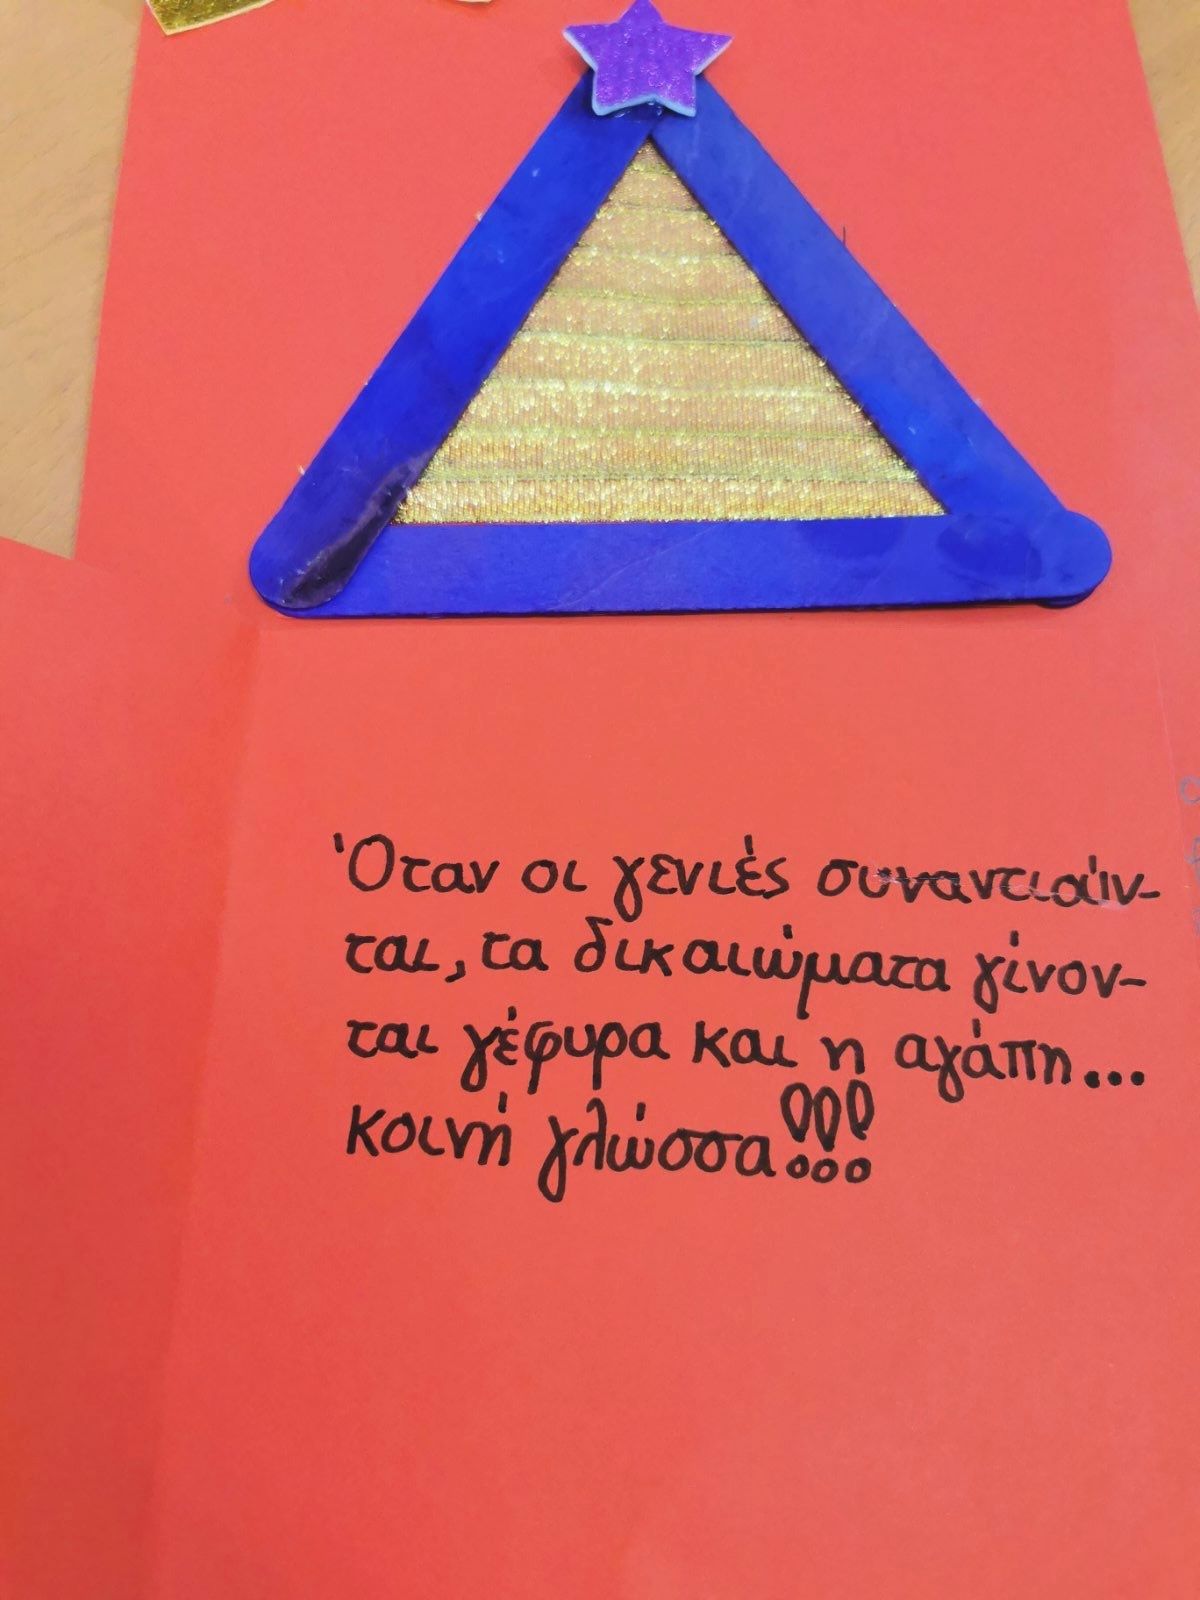 Όταν οι γενιές συναντιούν-
ται, τα δικαιώματα γίνον-
ται γέφυρα και η αγάπη...
κοινή γλώσσα!!!